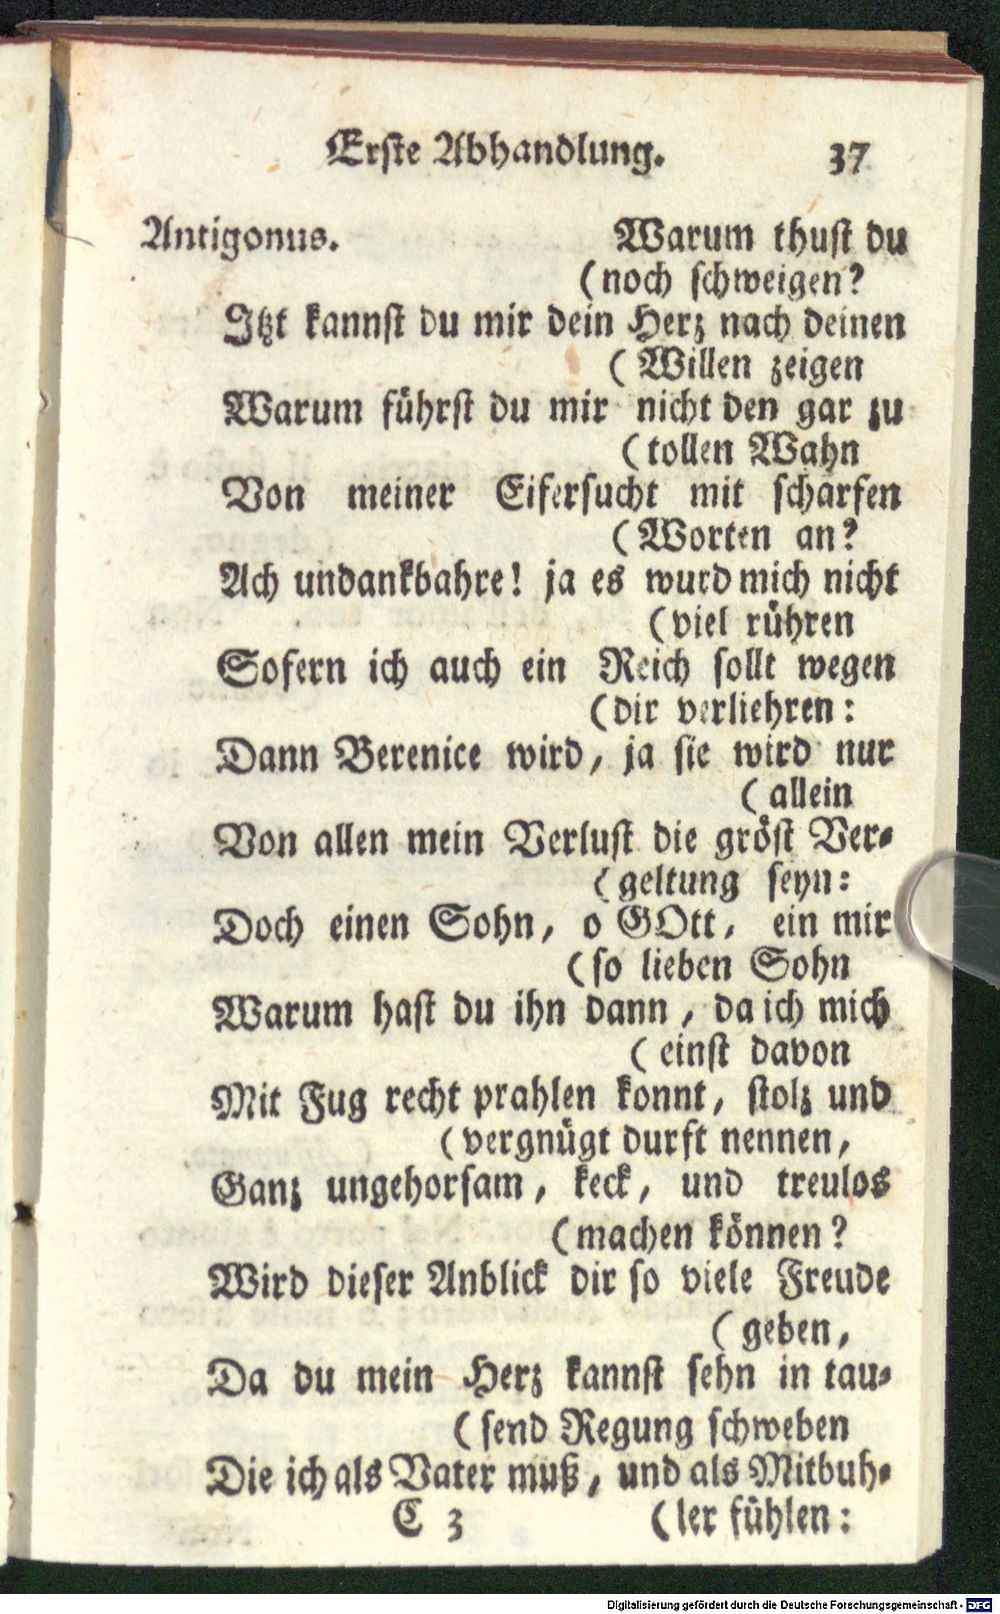 Erste Abhandlung. 37
Antigonus. Warum thust du
(noch schweigen?
Itzt kannst du mir dein Herz nach deinen
(Willen zeigen
Warum führst du mir nicht den gar zu
(tollen Wahn
Von meiner Eifersucht mit scharfen
(Worten an?
Ach undankbahre! ja es wurd mich nicht
(viel rühren
Sofern ich auch ein Reich sollt wegen
(dir verliehren:
Dann Berenice wird, ja sie wird nur
(allein
Von allen mein Verlust die gröst Ver-
(geltung seyn:
Doch einen Sohn, o GOtt, ein mir
(so lieben Sohn
Warum hast du ihn dann, da ich mich
(einst davon
Mit Fug recht prahlen konnt, stolz und
(vergnügt durft nennen,
Ganz ungehorsam, keck, und treulos
(machen können?
Wird dieser Anblick dir so viele Freude
(geben,
Da du mein Herz kannst sehn in tau-
(send Regung schweben
Die ich als Vater muß, und als Mitbuh-
C 3 (ler fühlen:
Digitalisierung gefördert durch die Deutsche Forschungsgemeinschaft - DFG